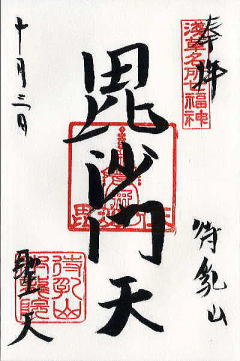 奉拝
淺草名所七福神
待乳山
毘沙門天
十月三日
聖天
待乳山